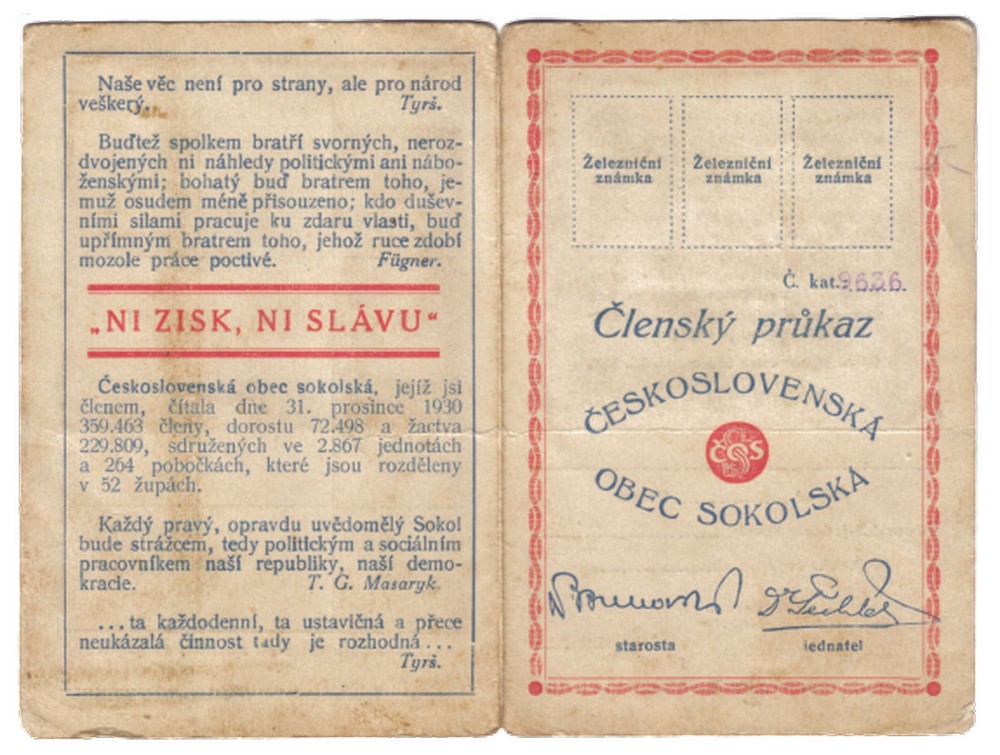 Naše věc není pro strany, ale pro národ
veškerý. Tyrš.
Buďtež spolkem bratří svorných, neroz-
dvojených ni náhledy politickými ani nábo-
ženskými; bohatý buď bratrem toho, je-
muž osudem méně přisouzeno; kdo dušev-
ními silami pracuje ku zdaru vlasti, buď
upřímným bratrem toho, jehož ruce zdobí
mozole práce poctivé. Fügner.
„NI ZISK, NI SLÁVU“
Československá obec sokolská, jejíž jsi
členem, čítala dne 31. prosince 1930
359.463 členy, dorostu 72.498 a žactva
229.809, sdružených ve 2.867 jednotách
a 264 pobočkách, které jsou rozděleny
v 52 župách.
Každý pravý, opravdu uvědomělý Sokol
bude strážcem, tedy politickým a sociálním
pracovníkem naší republiky, naší demo-
kracie. T. G. Masaryk.
...ta každodenní, ta ustavičná a přece
neukázalá činnost tady je rozhodná...
Tyrš.
Železniční
známka
Železniční
známka
Železniční
známka
Č. kat. 9636
Členský průkaz
ČESKOSLOVENSKÁ
ČOS
OBEC SOKOLSKÁ
starosta
jednatel